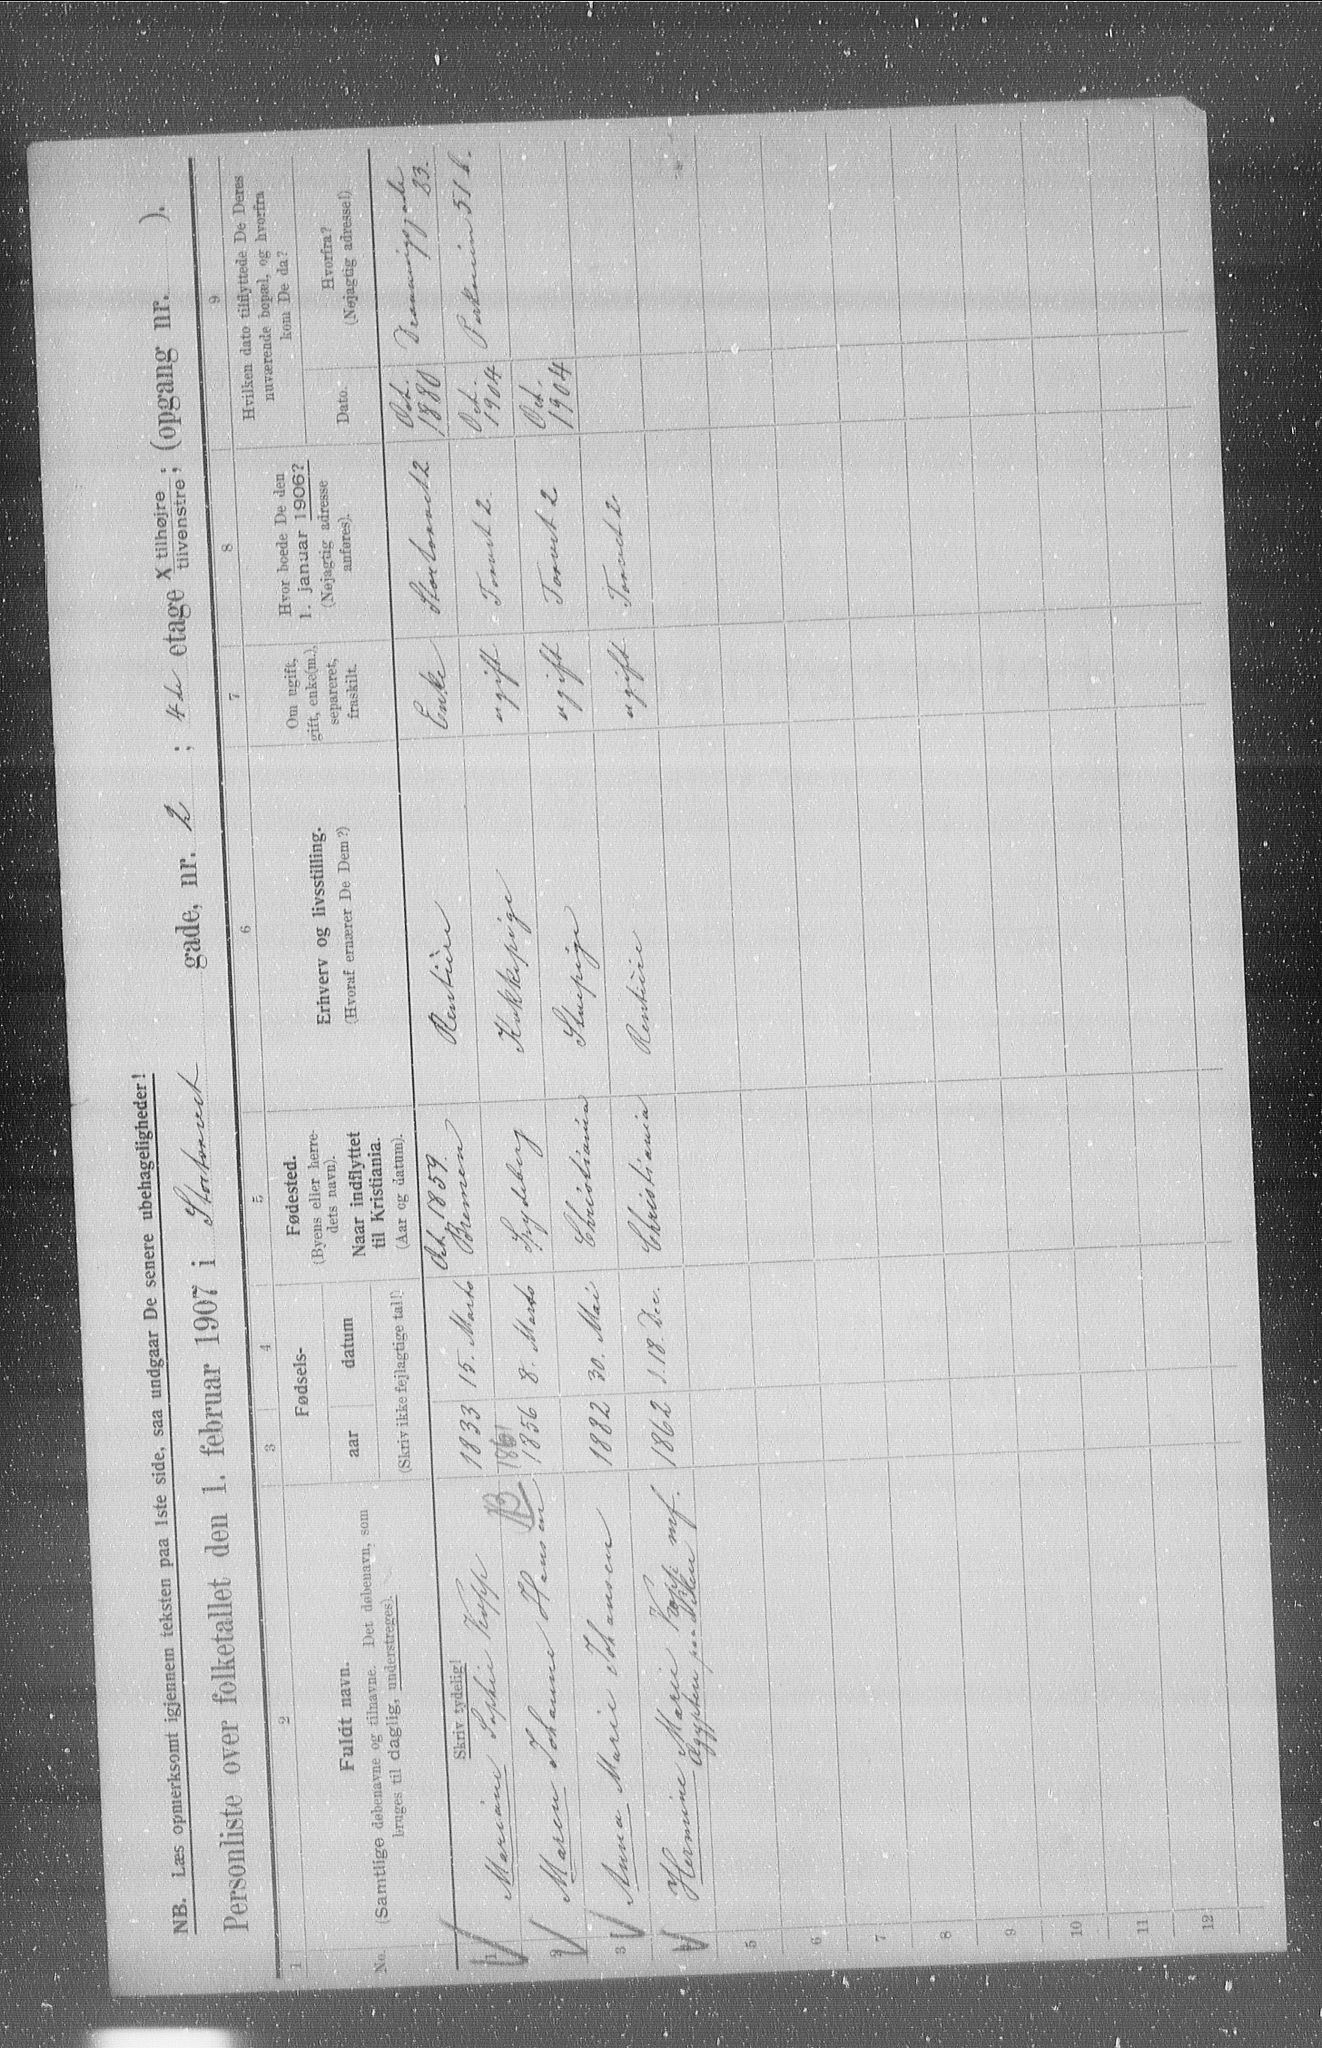 NB. Læs opmerksomt igjennem teksten paa 1ste side, saa undgaar De senere ubehageligheder!
Personliste over folketallet den 1. februar 1907 i Stortorvet gade, nr. 2 ; 4de etage X tilhøjre / tilvenstre ; (opgang nr. ).
1 2 3 4 5 6 7 8 9
No.
Fuldt navn.
(Samtlige døbenavne og tilnavne. Det døbenavn, som
bruges til daglig, understreges).
Fødsels-
aar datum
(Skriv ikke fejlagtige tal!)
Fødested.
(Byens eller herre-
dets navn).
Naar indflyttet
til Kristiania.
(Aar og datum).
Erhverv og livsstilling.
(Hvoraf ernærer De Dem?)
Om ugift,
gift, enke(m.),
separeret,
fraskilt.
Hvor boede De den
1. januar 1906?
(Nøjagtig adresse
anføres).
Hvilken dato tilflyttede De Deres
nuværende bopæl, og hvorfra
kom De da?
Dato.
Hvorfra?
(Nøjagtig adresse!)
Skriv tydelig!
Oct. 1859
1 Mariane Sophie Kopp 1833 15. Marts Bremen Rentière Enke Stortorvet 2 Oct. 1880 Dronningsgade 23.
1861
2 Maren Johanne Hansen B 1856 8. Marts Spydeberg Kokkepige ugift Torvet 2. Oct. 1904 Parkveien 51 b.
3 Anna Marie Johansen 1882 30. Mai Christiania Stuepige ugift Torvet 2 Oct. 1904
4 Hermine Marie Kopp mf. 1862 18. Dec. Christiania Rentière ugift Torvet 2
Ægypten paa
5
6
7
8
9
10
11
12